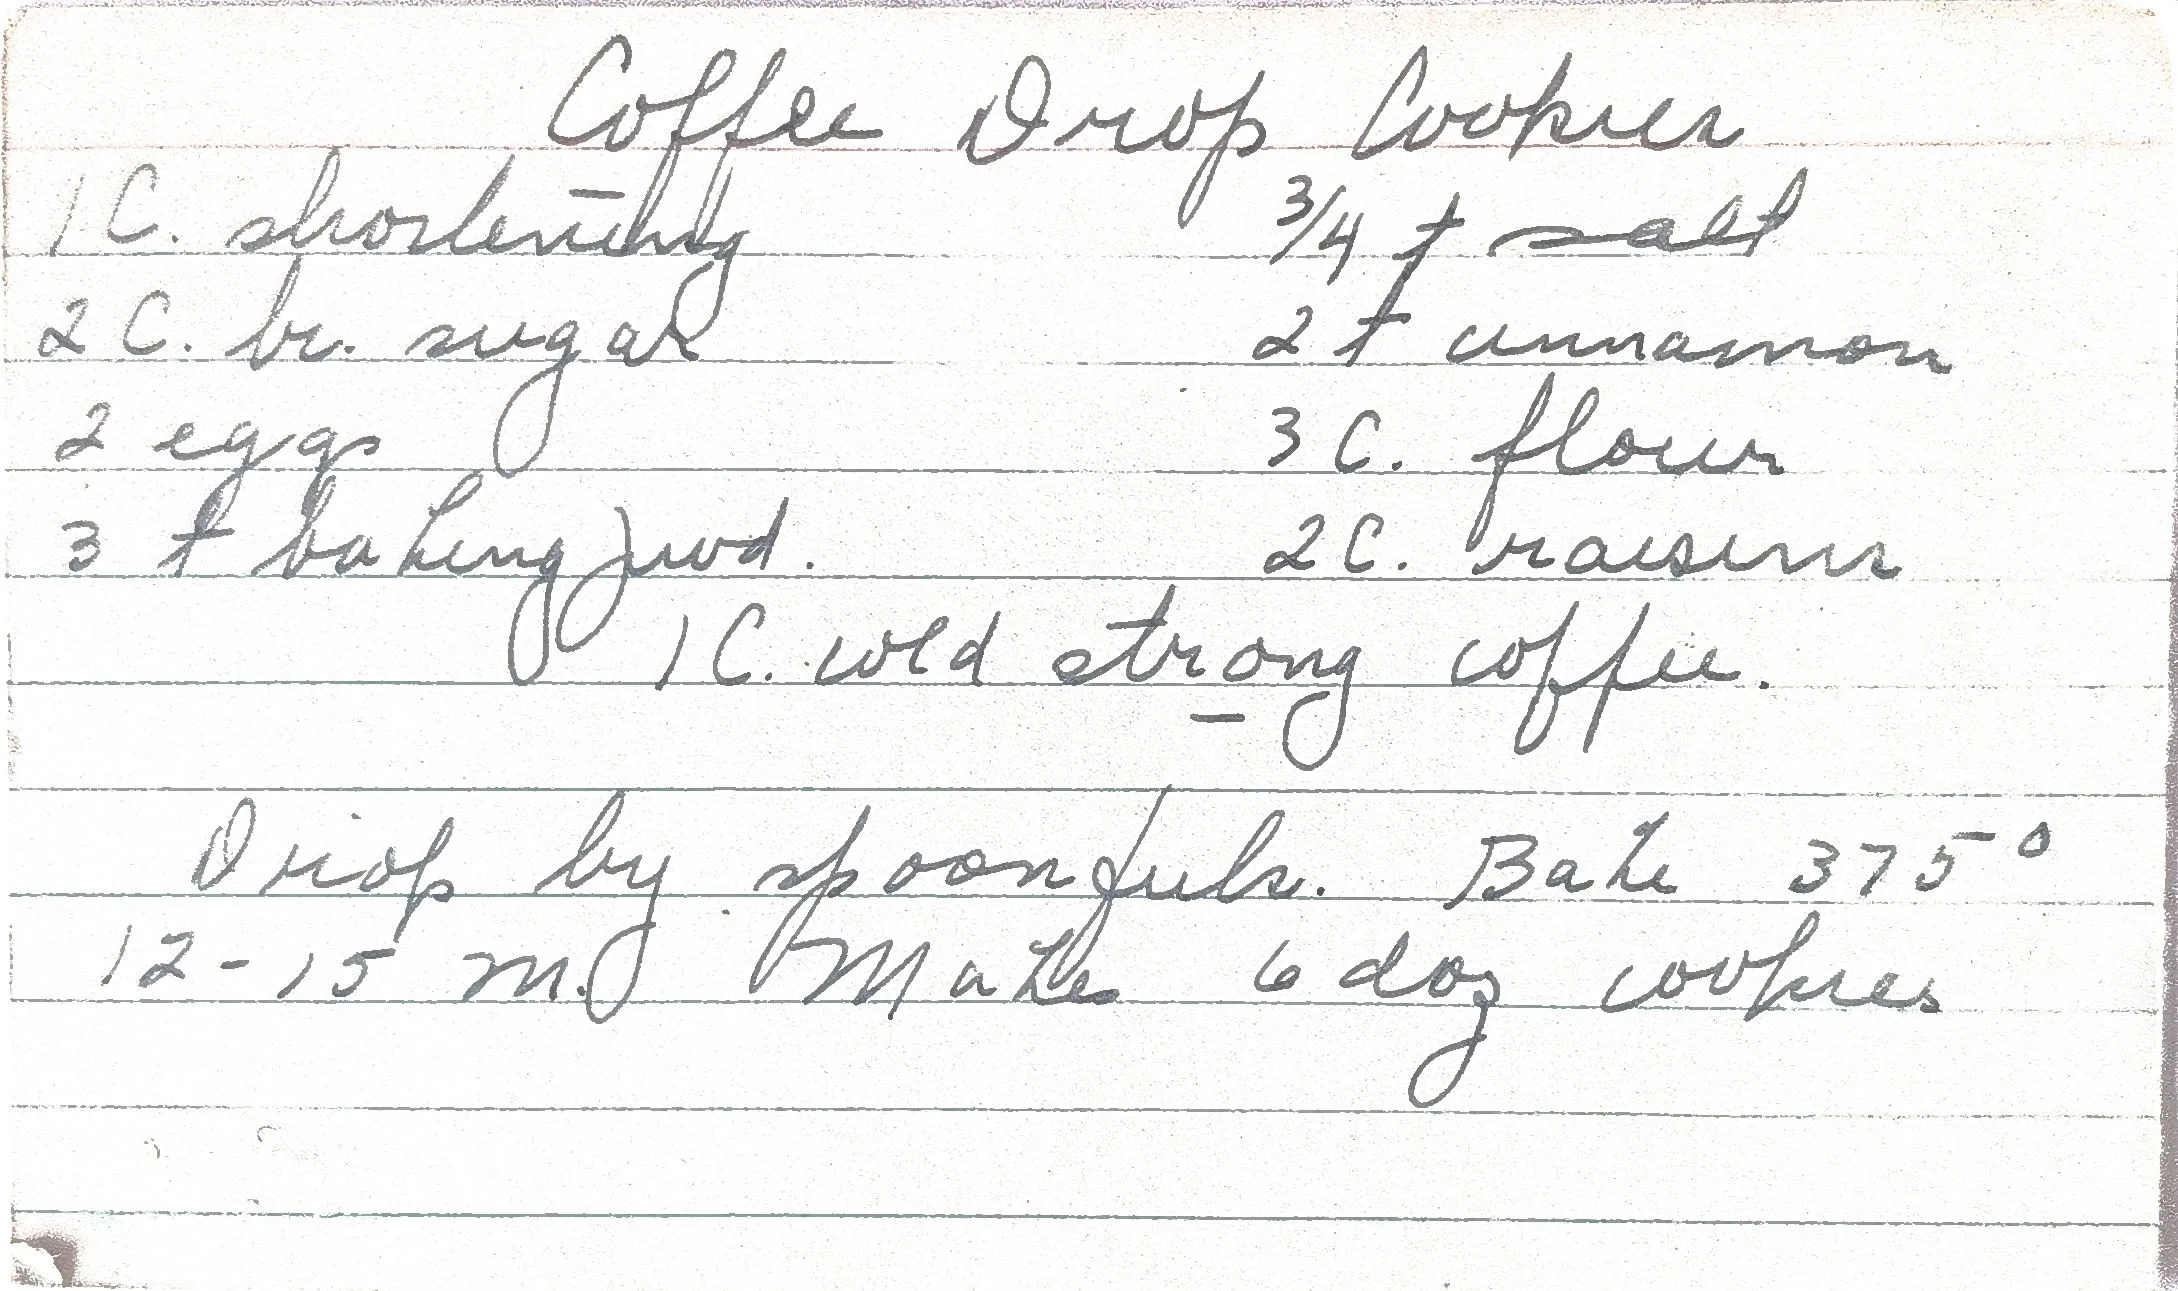 Coffee Drop Cookies
1 C. shortening 3/4 t salt
2 C. br. sugar 2 t cinnamon
2 eggs 3 C. flour
3 t baking powd. 2 C. raisins
1 C. cold strong coffee.
Drop by spoonfuls. Bake 375°
12-15 m. Makes 6 doz cookies